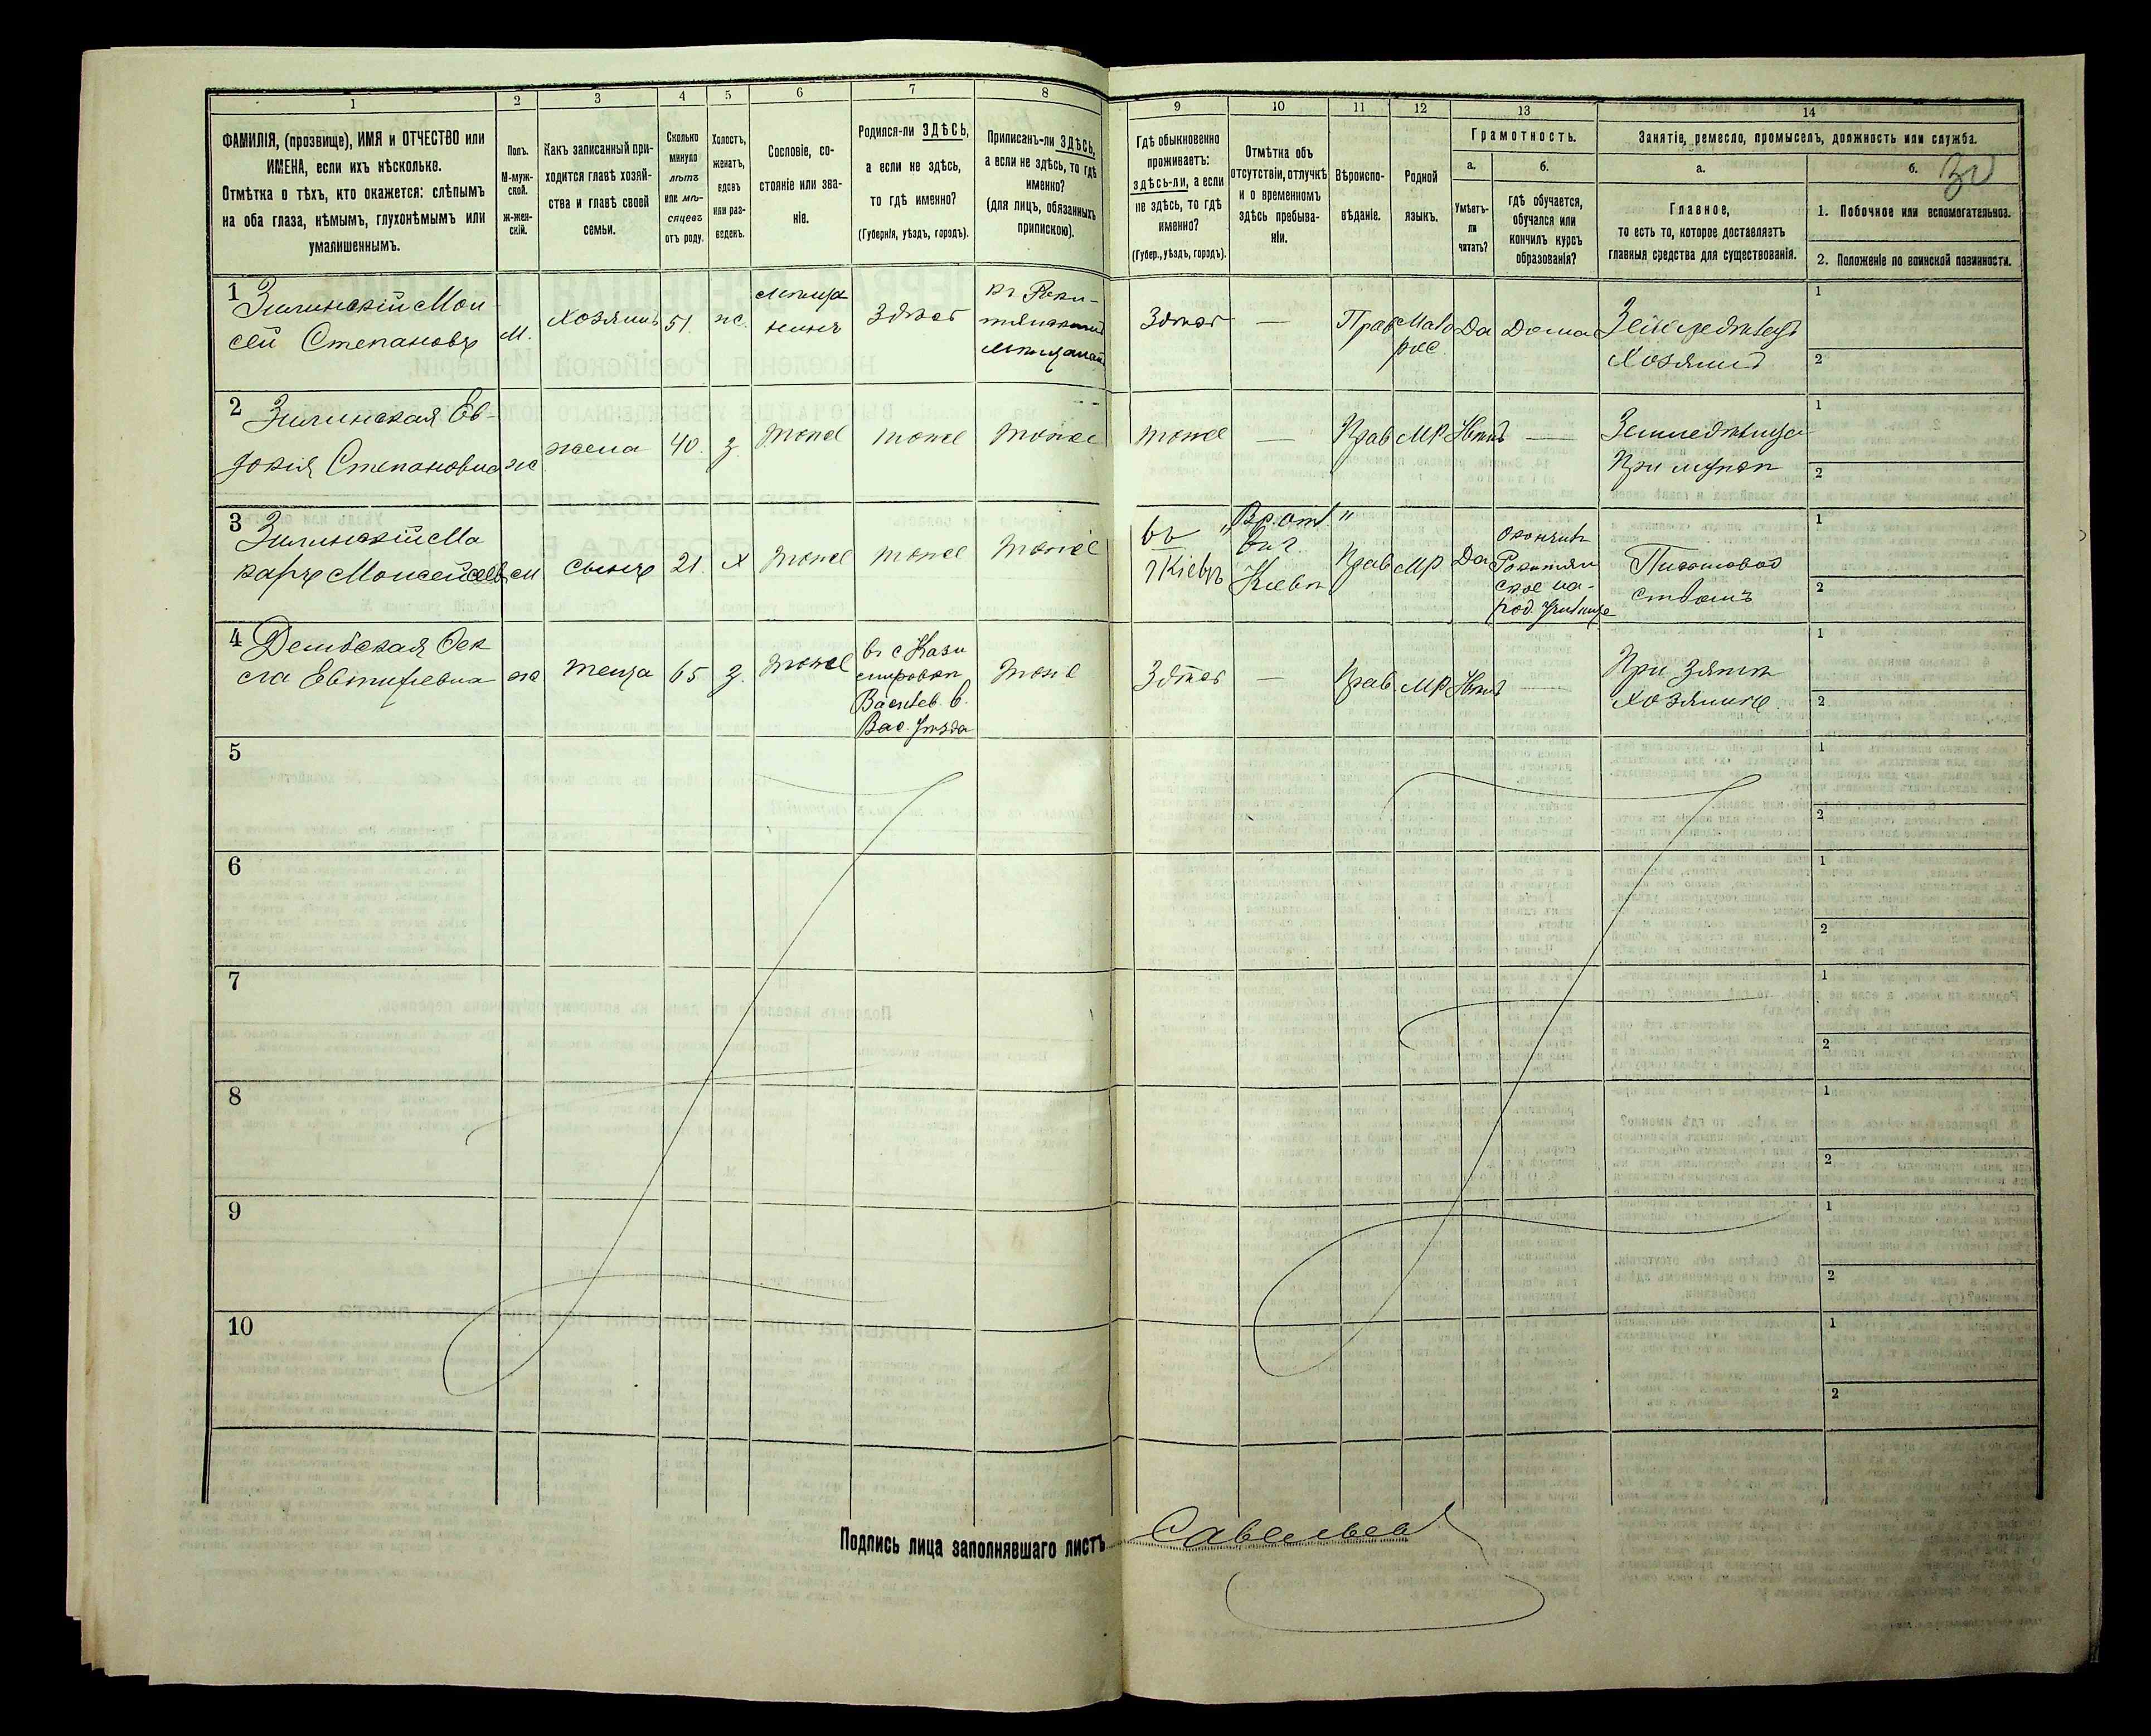 1
2
3
4
5
6
7
8
ФАМИЛІЯ, (прозвище), ИМЯ и ОТЧЕСТВО или
ИМЕНА, если ихъ нѣсколько.
Отмѣтка о тѣхъ, кто окажется: слѣпымъ
на оба глаза, нѣмымъ, глухонѣмымъ или
умалишеннымъ.
Полъ.
М-муж-
ской.
ж-жен-
скій.
Какъ записанный при-
ходится главѣ хозяй-
ства и главѣ своей
семьи.
Сколько
минуло
лѣтъ
или мѣ-
сяцевъ
отъ роду.
Холостъ,
женатъ,
вдовъ
или раз-
веденъ.
Сословіе, со-
стояніе или зва-
ніе.
Родился-ли ЗДѢСЬ,
а если не здѣсь,
то гдѣ именно?
(Губернія, уѣздъ, городъ).
Приписанъ-ли ЗДѢСЬ,
а если не здѣсь, то гдѣ
именно?
(для лицъ, обязанныхъ
припискою).
9
10
11
12
13
14
Гдѣ обыкновенно
проживаетъ:
здѣсь-ли, а если
не здѣсь, то гдѣ
именно?
(Губер., уѣздъ, городъ).
Отмѣтка объ
отсутствіи, отлучкѣ
и о временномъ
здѣсь пребыва-
ніи.
Вѣроиспо-
вѣданіе.
Родной
языкъ.
Грамотность.
а.
б.
Умѣетъ-
ли
читать?
гдѣ обучается,
обучался или
кончилъ курсъ
образованія?
Занятіе, ремесло, промыселъ, должность или служба.
а.
б.
30
Главное,
то есть то, которое доставляетъ
главныя средства для существованія.
1. Побочное или вспомогательное.
2. Положеніе по воинской повинности.
1 Зилинскій Мои
сей Степановъ
М.
Хозяинъ
51.
ж.
мѣща
нинъ
Здѣсь
къ Роки-
Здѣсь
—
Прав
Мало
рос.
Да
Дома
Хозяинъ
1
2
2 Зилинская Ев-
докія Степановна
ж
жена
40.
з.
тоже
тоже
тоже
тоже
—
Прав
МР
Нѣтъ
—
При мужѣ
1
2
3 Зилинскій Ма
каръ Моисеевъ
м
сынъ
21.
Х
тоже
тоже
тоже
въ
г Кіевѣ
"Вр. от."
въ г.
Кіевѣ
Прав
МР
Да
Окончилъ
Рокитян
ское на-
род. училище
Письмовод
ствомъ
1
2
4 Ѳек
ла Евтифіевна
ж
теща
65
з.
тоже
въ с Кази
мировкѣ
Васильев. в.
Вас. уѣзда
тоже
Здѣсь
—
Прав
МР
Нѣтъ
—
При зятѣ
хозяинѣ
1
2
5
1
2
6
1
2
7
1
2
8
1
2
9
1
2
10
1
2
Подпись лица заполнявшаго листъ Савельев